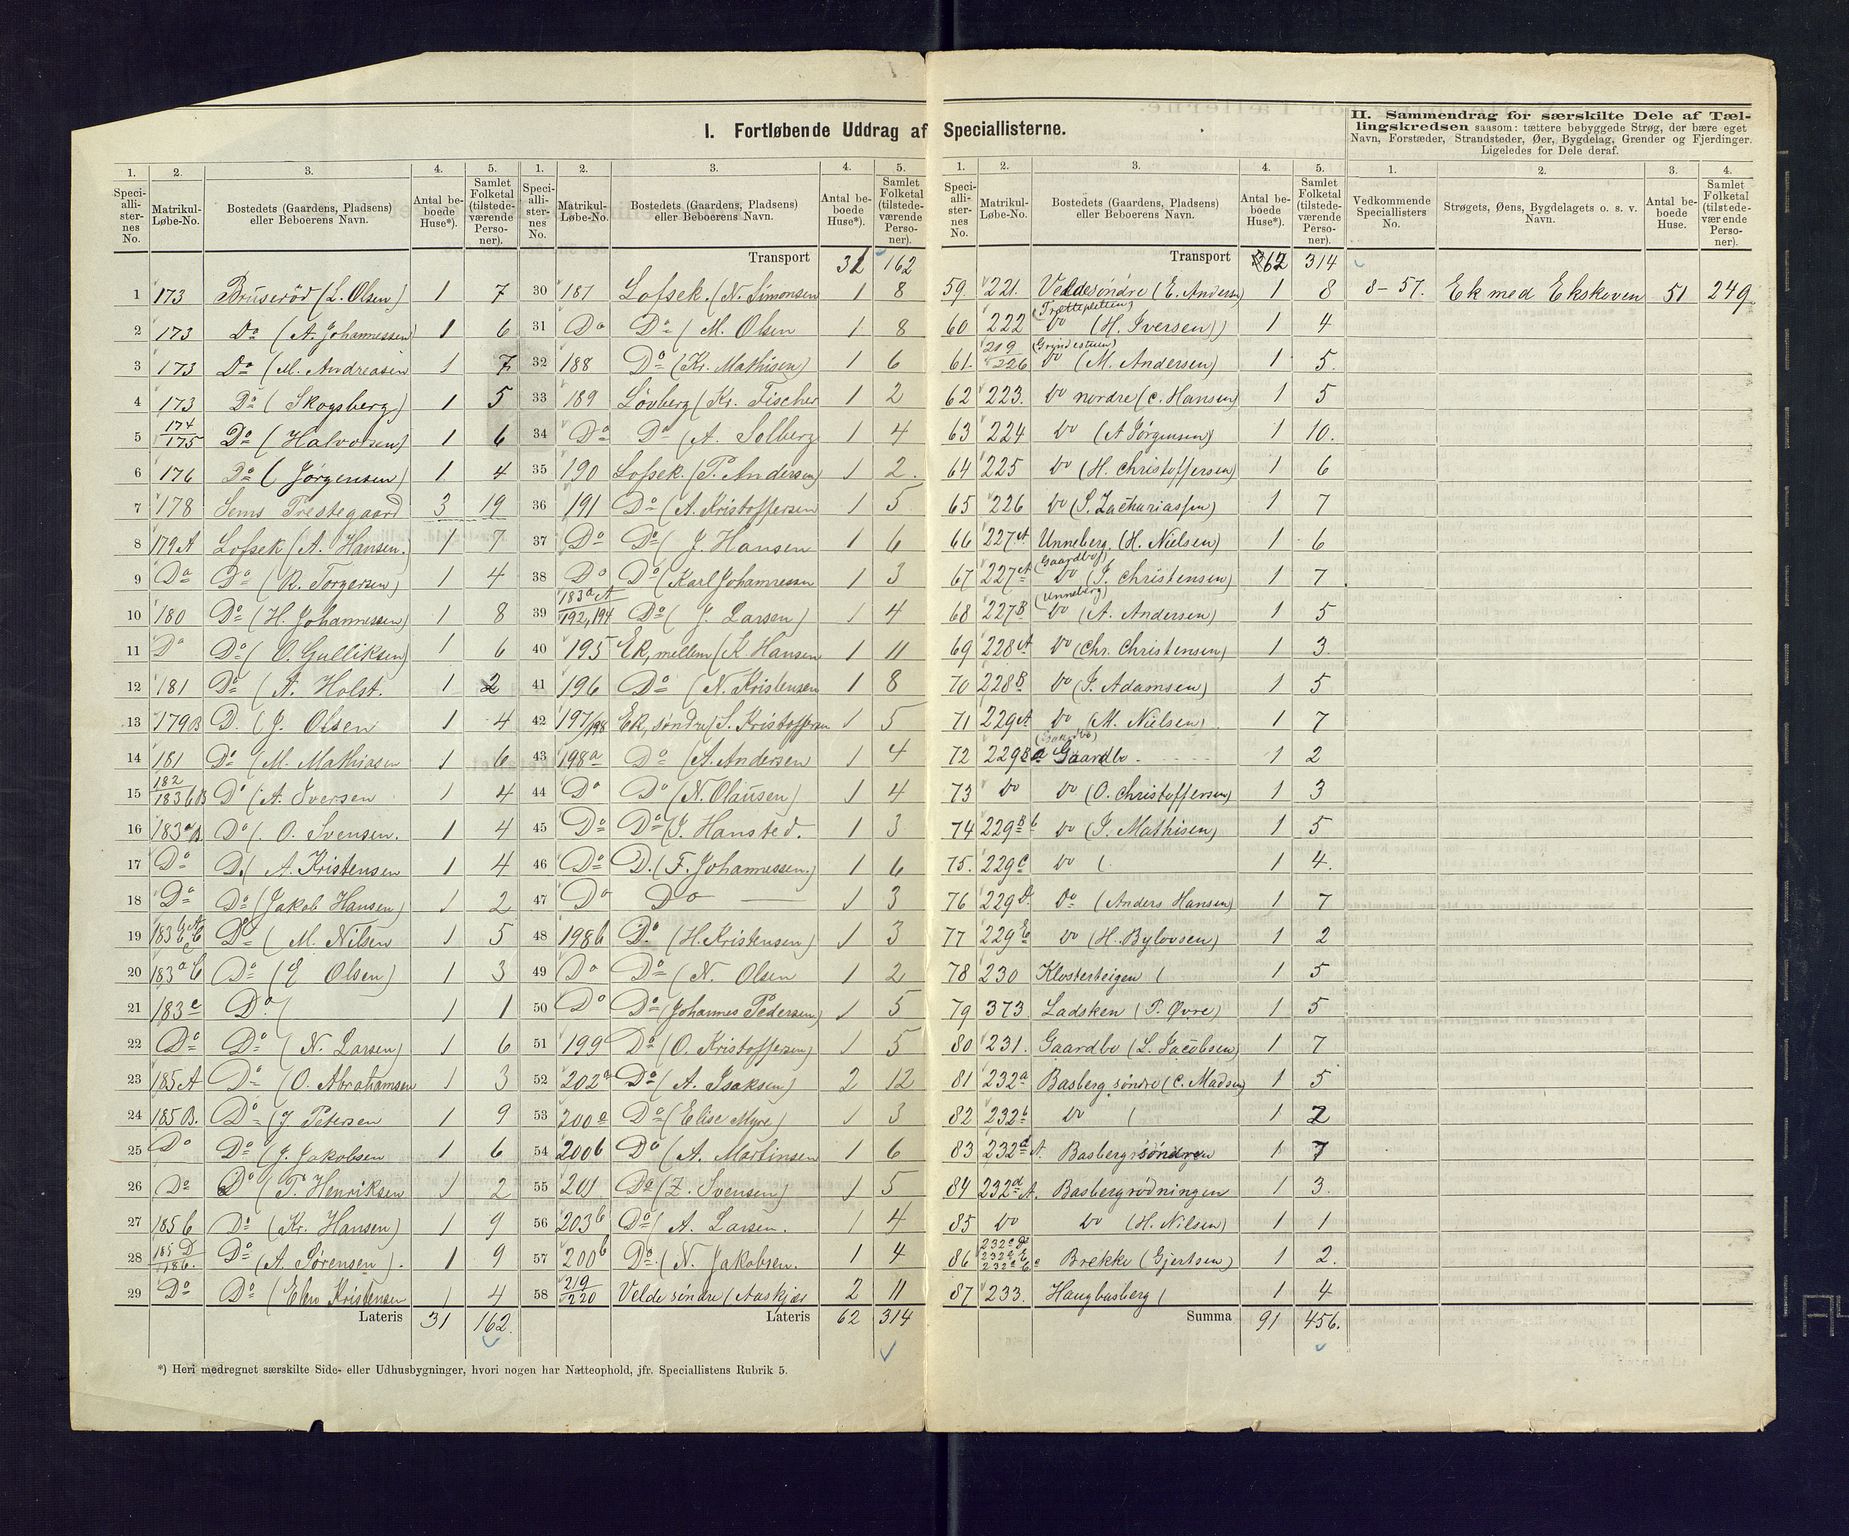 I. Fortløbende Uddrag af Speciallisterne.
II. Sammendrag for særskilte Dele af Tællingskredsen saasom: tættere bebyggede Strøg, der bære eget Navn, Forstæder, Strandsteder, Øer, Bygdelag, Grender og Fjerdinger. Ligeledes for Dele deraf.
1. 2. 3. 4. 5.
Speciallisternes No. Matrikul-Løbe-No. Bostedets (Gaardens, Pladsens) eller Beboerens Navn. Antal beboede Huse*). Samlet Folketal (tilstedeværende Personer).
1 173 Bruserød (L. Olsen) 1 7
2 173 Do (A. Johannessen) 1 6
3 173 Do (M. Andreasen 1 7
4 173 Do (Skogsberg) 1 5
5 174/175 Do (Halvorsen) 1 6
6 176 Do (Jørgensen) 1 4
7 178 Sems Prestegaard 3 19
8 179A Lofsek (A. Hansen. 1 7
9 Do Do (R. Torgersen) 1 4
10 180 Do (H. Johannessen) 1 8
11 Do Do (O. Gulliksen) 1 6
12 181 Do (A. Holst. 1 2
13 179B D. (J. Olsen 1 4
14 181 Do (M. Mathiasen 1 6
15 182/183bB Do (A. Iversen 1 4
16 183aB Do (O. Svensen. 1 4
17 Do D. (A. Kristensen 1 4
18 Do Do (Jakob Hansen) 1 2
19 Do (M. Nilsen 1 5
20 183aC Do (E Olsen) 1 3
21 183c Do ( 1 1
22 Do Do (N. Larsen) 1 6
23 185A Do (O. Abrahamsen 1 3
24 185B. Do (J Petersen 1 9
25 Do Do (J. Jakobsen 1 6
26 Do Do (T. Henriksen 1 2
27 185C Do (Kr. Hansen) 1 9
28 185D/186. Do (A. Sørensen) 1 9
29 Do Do (Kristensen 1 4
Lateris 31 162.
1. 2. 3. 4. 5.
Speciallisternes No. Matrikul-Løbe-No. Bostedets (Gaardens, Pladsens) eller Beboerens Navn. Antal beboede Huse*). Samlet Folketal (tilstedeværende Personer).
Transport 31 162
30 187 Lofsek. (N. Simonsen 1 8
31 Do Do (M. Olsen 1 8
32 188 Do (Kr. Mathisen) 1 6
33 189 Løvberg (Kr. Fischer 1 2
34 Do Do (A. Solberg 1 4
35 190 Lofsek. (P. Andersen) 1 2.
36 191 Do (A. Kristoffersen 1 5
37 Do Do (J. Hansen 1 6
38 Do Do (Karl Johannessen 1 3
39 183aA/192,194 Do (J. Larsen) 1 4
40 195 Ek, mellem (K Hansen 1 11
41 196 Do (N. Kristensen 1 8
42 197/198 Ek, søndre (S. Kristoffersen 1 5
43 198a Do (A. Andersen 1 4
44 Do Do (N. Olausen) 1 4
45 Do Do (J. Hansted. 1 3
46 Do D. (F. Johannessen.) 1 6
47 Do Do — 1 3
48 198b D.o (H. Kristensen) 1 3
49 Do Do (N. Olsen 1 2
50 Do Do (Johannes Pedersen) 1 5
51 199 Do (O. Kristoffersen) 1 5
52 202a Do (A. Isaksen) 2 12
53 200a Do (Elise Myre) 1 3
54 200b Do (A. Martinsen 1 6
55 201 Do (Z. Svensen) 1 5
56 203b Do (A. Larsen. 1 4
57 200b Do. (N. Jakobsen. 1 4
58 219/220 Velde søndre (Aaskjær 2 11
Lateris 62 314
*) Heri medregnet særskilte Side- eller Udhusbygninger, hvori nogen har Natteophold, jfr. Speciallistens Rubrik 5.
1. 2. 3. 4. 5.
Speciallisternes No. Matrikul-Løbe-No. Bostedets (Gaardens, Pladsens) eller Beboerens Navn. Antal beboede Huse*). Samlet Folketal (tilstedeværende Personer).
Transport 62 314
59. 221. Veldesøndre (E. Andersn 1 8
60 222 Do (H. Iversen) 1 4
61. 219/226 Do (M. Andersen) 1 5.
62 223. Do nordre (C. Hansen) 1 5
63 224 Do (A Jørgensen) 1 10.
64 225 Do (H. Christoffersen) 1 6
65 226 Do (S. Zachariassen) 1 7
66 227A Unneberg. (H. Nielsen) 1 6
67 227A (Gaardbo) Do (J. Christensen) 1 7
68 227B (Unneberg) Do (A. Andersen) 1 5
69 228A Do (Chr. Christensen) 1 3.
70 228B Do (J. Adamsen) 1 5
71 229A Do (M. Nielsen) 1 7
72 229Ba (Gaardbo) Gaardbo 1 2
73 Do Do (O. Christoffersen) 1 3
74 229Bb Do (J. Mathisen) 1 5
75. 229C Do ( 1 4.
76 229D. Do (Anders Hansen) 1 7
77 229E Do (H. Bylovsen) 1 2
78 230 Klosterteigen ( 1 5
79 373 Ladsken (P. Øvre) 1 5
80 231. Gaardbo (L. Jacobsen) 1 7
81 232a Basberg søndre (C. Madsen) 1 5
82 232b Do ( 1 2
83 232d A. Basberg søndre 1 7
84 232d A. Basbergrødningen 1 3.
85 Do Do (H. Nilsen) 1 1
86 Brekke (Gjertsen) 1 2.
87 233. Haugbasberg ( 1 4
Summa 91 456.
1. 2. 3. 4.
Vedkommende Speciallisters No. Strøgets, Øens, Bygdelagets o. s. v. Navn. Antal beboede Huse. Samlet Folketal (tilstedeværende Personer).
8-57. Ek med Ekskoven 51 249